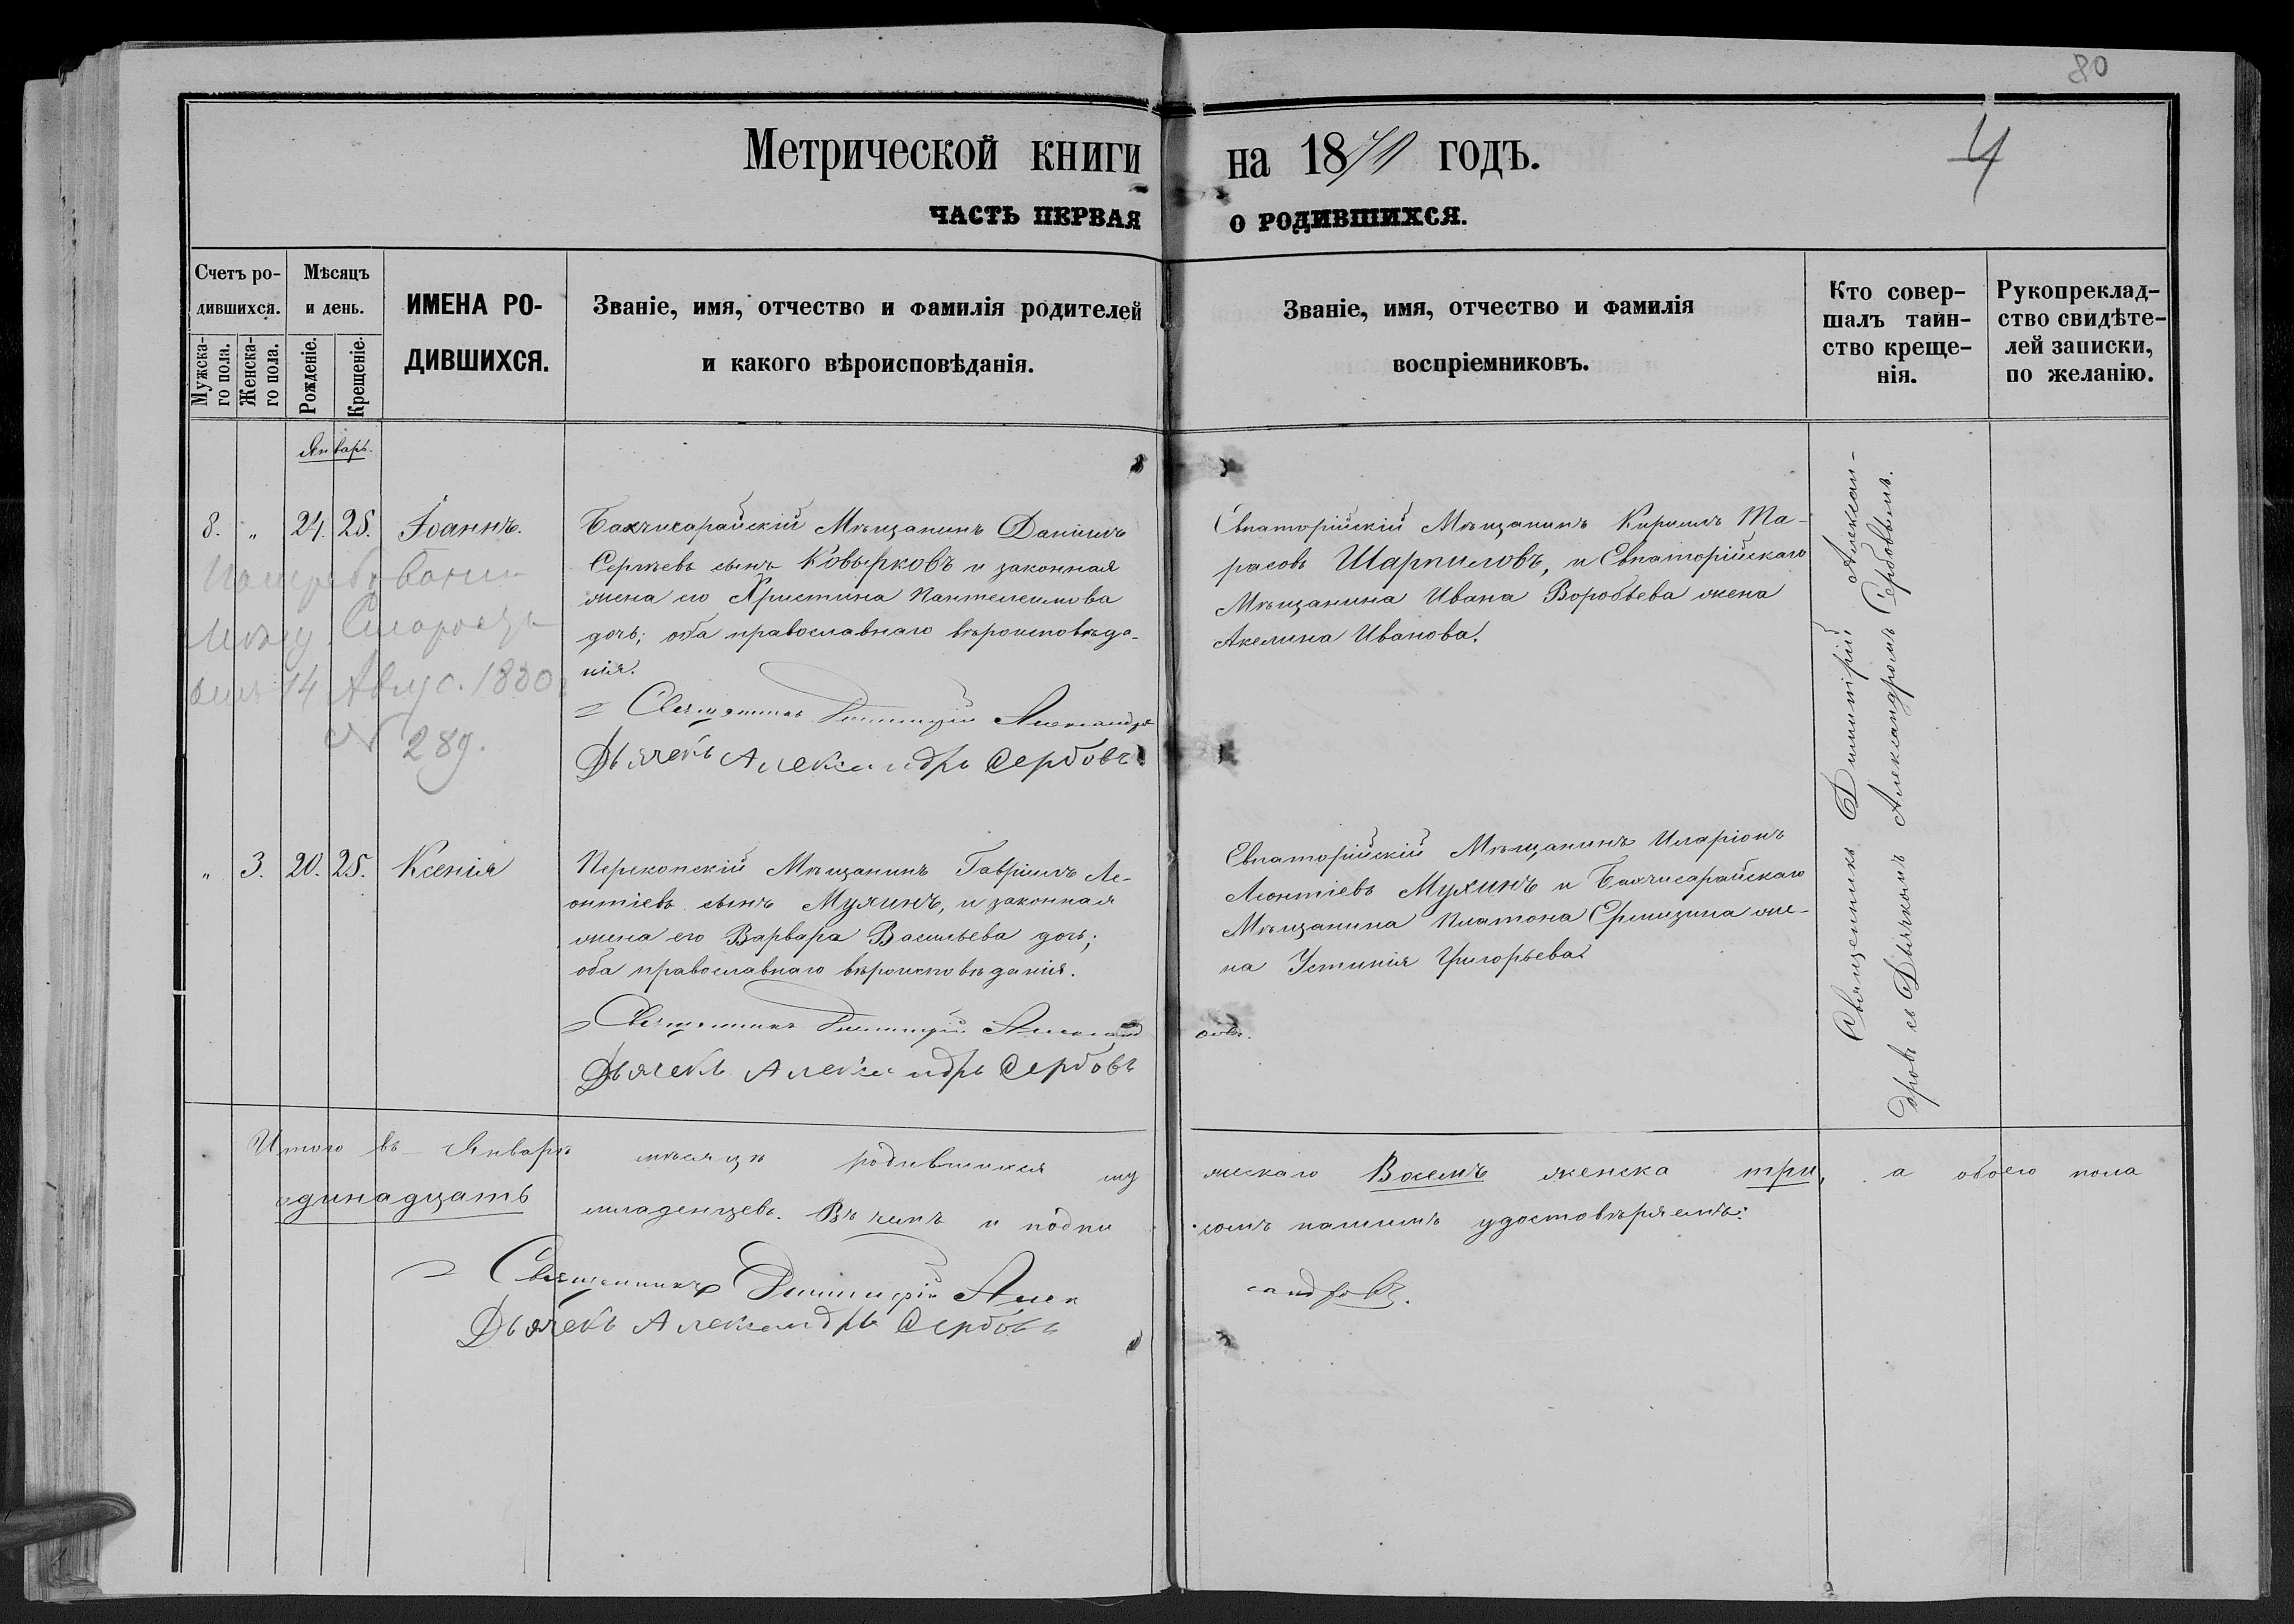 80
Метрической книги на 1870 годъ.
4
ЧАСТЬ ПЕРВАЯ О РОДИВШИХСЯ.
Счетъ ро-
дившихся.
Мужска-
го пола.
Женска-
го пола.
Мѣсяцъ
и день.
Рожденіе.
Крещеніе.
ИМЕНА РО-
ДИВШИХСЯ.
Званіе, имя, отчество и фамилія родителей
и какого вѣроисповѣданія.
Званіе, имя, отчество и фамилія
воспріемниковъ.
Кто совер-
шалъ таин-
ство креще-
нія.
Рукопреклад-
ство свидѣте-
лей записки,
по желанію.
Январь.
8. „ 24. 25. Іоаннъ.
Бахчисарайскій Мѣщанинъ Даніилъ
Сергѣевъ сынъ Ковырковъ и законная
жена его Христина Пантелеимова
дочь; оба православнаго вѣроисповѣда-
нія.
Священникъ Димитрій Александр
Дьячекъ Александръ Сербовъ
Евпаторійскій Мѣщанинъ Кирилъ Та-
расовъ Шарпиловъ, и Евпаторійскаго
Мѣщанина Ивана Воробьева жена
Акелина Иванова.
14 Авгус. 1880
N 289.
„ 3. 20. 25. Ксенія
Перекопскій Мѣщанинъ Гавріилъ Ле-
онтіевъ сынъ Мухинъ, и законная
жена его Варвара Васильева дочь;
оба православнаго вѣроисповѣданія.
Священникъ Димитрій Александ
овъ.
Дьячекъ Александръ Сербовъ
Евпаторійскій Мѣщанинъ Иларіонъ
Леонтіевъ Мухинъ и Бахчисарайскаго
Мѣщанина Платона же-
на Устинія Григорьева
Священникъ Димитрій Алексан-
дровъ съ Дьячкомъ Александромъ Сербовымъ.
Итого въ Январѣ мѣсяцѣ родившихся му жескаго Восемъ женска три, а обоего пола
одинадцать младенцевъ. Въ чемъ и подпи сомъ нашимъ удостовѣряемъ:
Священникъ Димитрій Алек сандровъ.
Дьячекъ Александръ Сербовъ